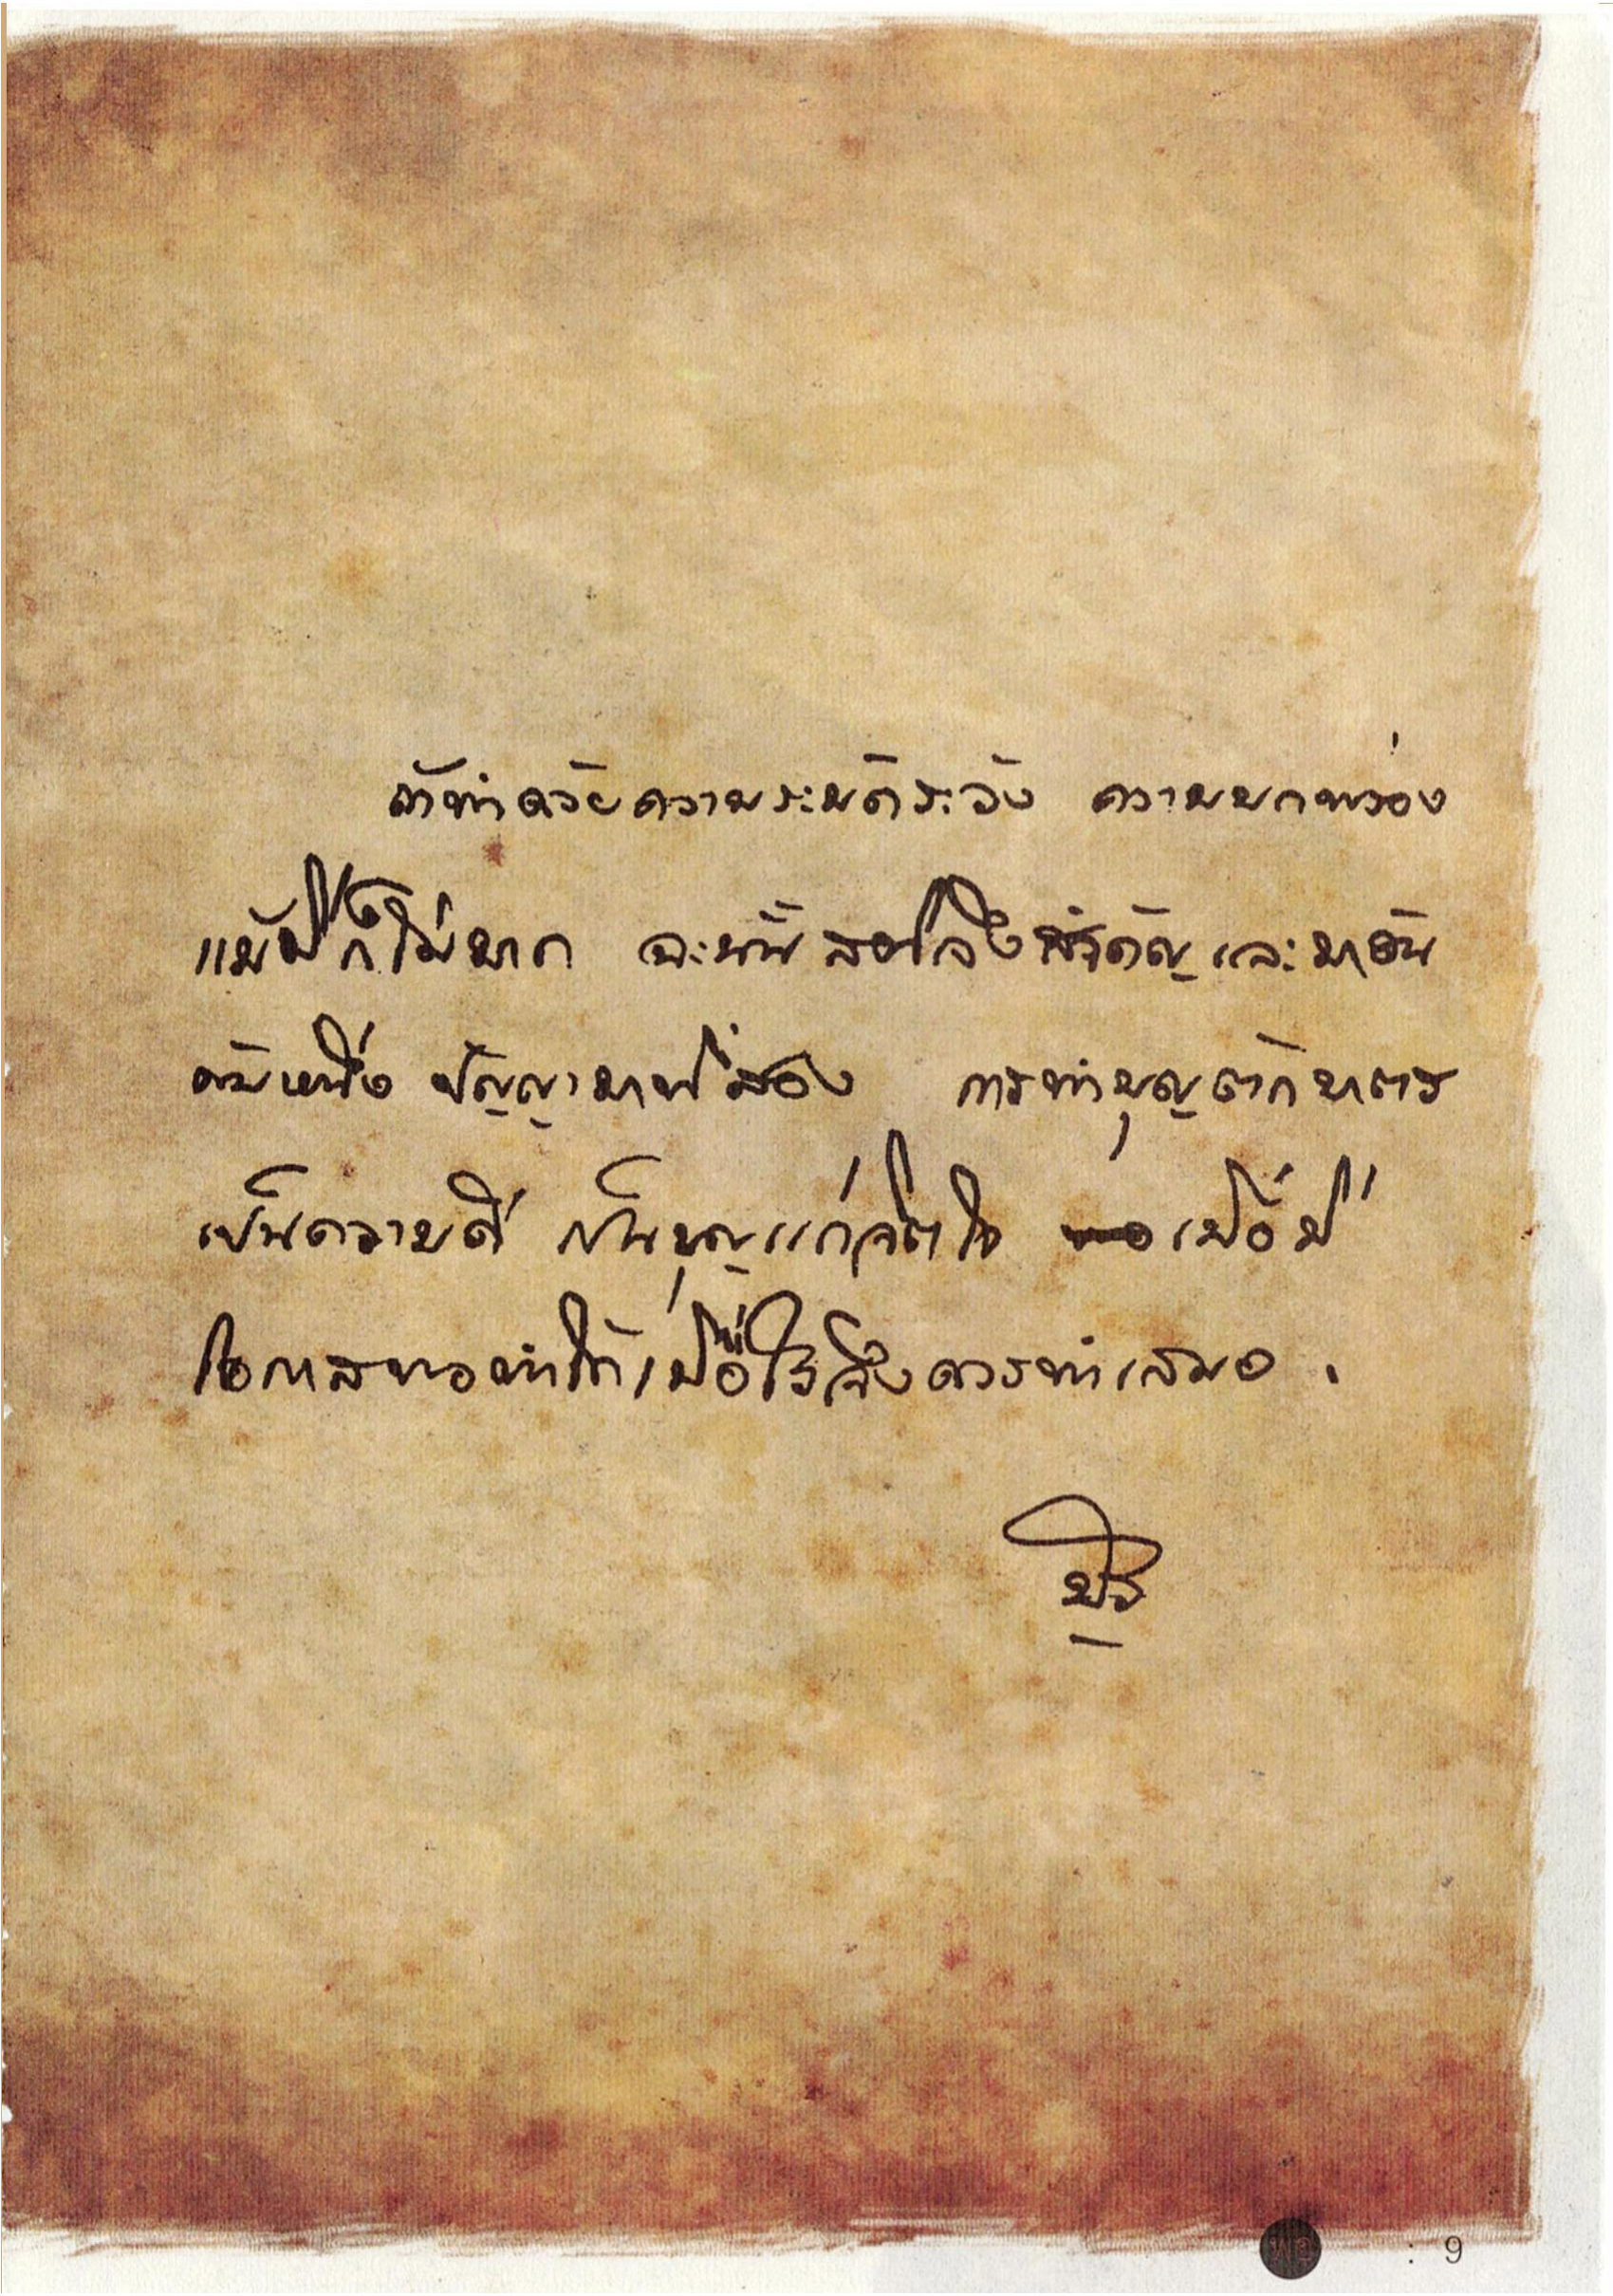 ถ้าทำด้วยความระมัดระวัง ความบกพร่อง
แม้มีก็ไม่มาก ฉะนั้น สติจึงสำคัญและมาอัน
ดับหนึ่ง ปัญญามาที่สอง การทำบุญตักบาตร
เป็นความดี เป็นบุญแก่จิตใจ เมื่อมี
โอกาสพอทำได้เมื่อไรจึงควรทำเสมอ .
: 9